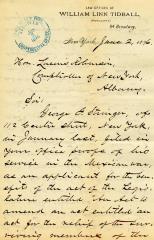 LAW OFFICES OF
WILLIAM LINN TIDBALL,
New York, June 2, 1876
Hon. Lucius Robinson,
Comptroller of New York,
Albany.
Sir:
George F. of
112 Centre Street, New York,
in June last, filed in
your office proofs of his
service in the Mexican war,
as an applicant for the ben-
efits of the act of the Legis-
lature entitled "An Act to
amend an act entitled an
act for the relief of the sur-
viving members of the